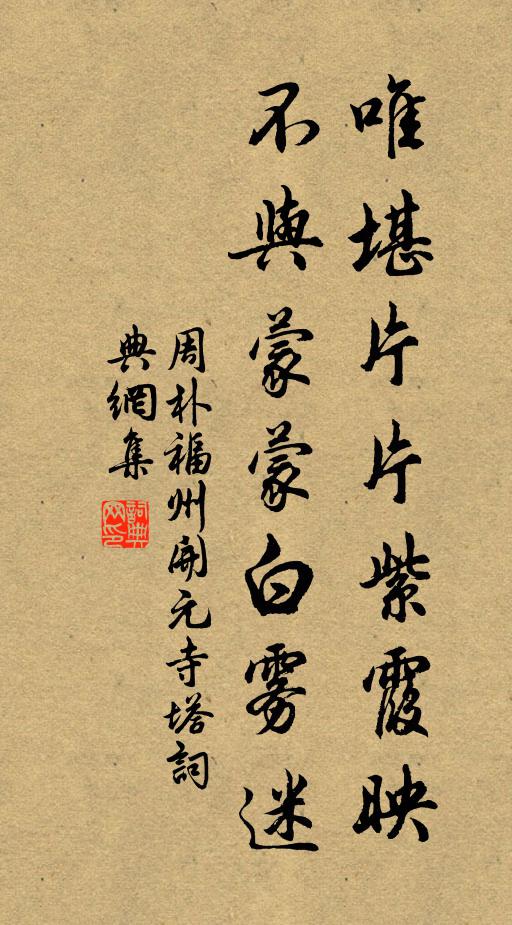 唯堪片片紫霞映
不與蒙蒙白雾迷
周朴福州開元寺塔詞
典網集
詞典
网印